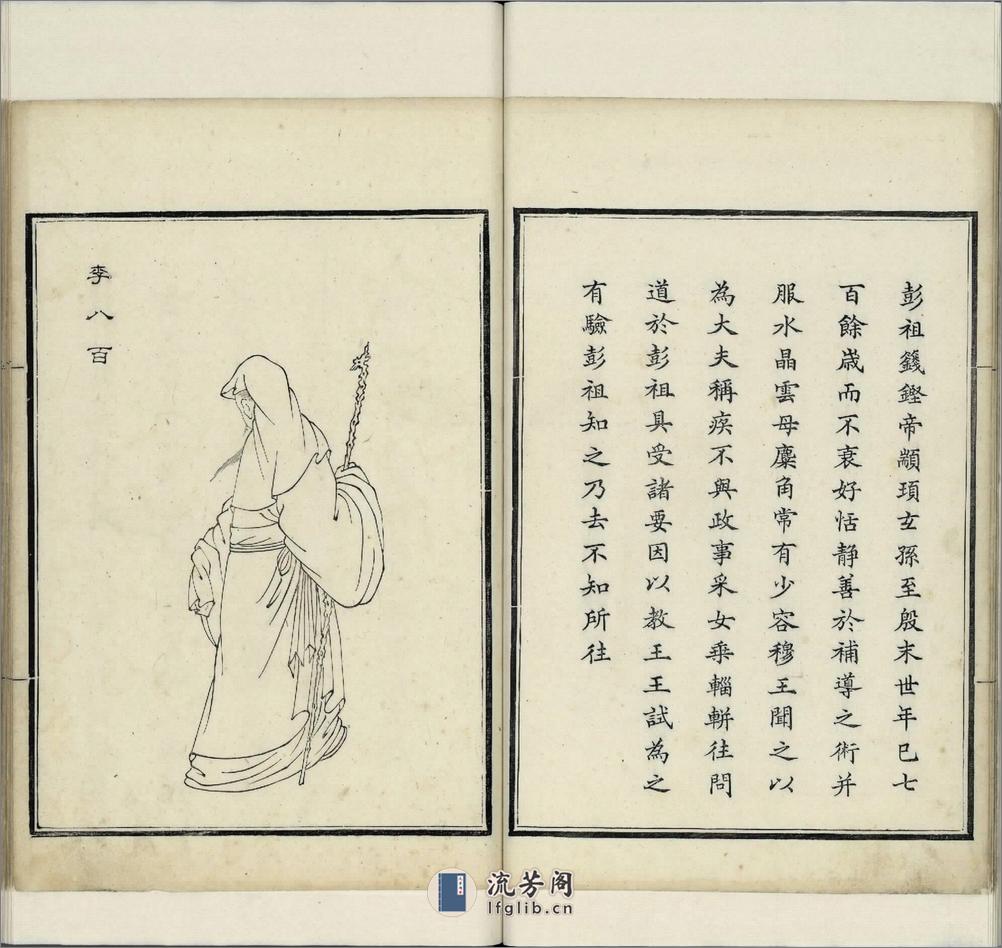 彭祖籛鏗帝顓頊玄孫至殷末世年已七
百餘歲而不衰好恬靜善於補導之術并
服水晶雲母麋角常有少容穆王聞之以
為大夫稱疾不與政事采女乘輜軿往問
道於彭祖具受諸要因以教王王試為之
有驗彭祖知之乃去不知所往
李八百
流芳阁
lfglib.cn